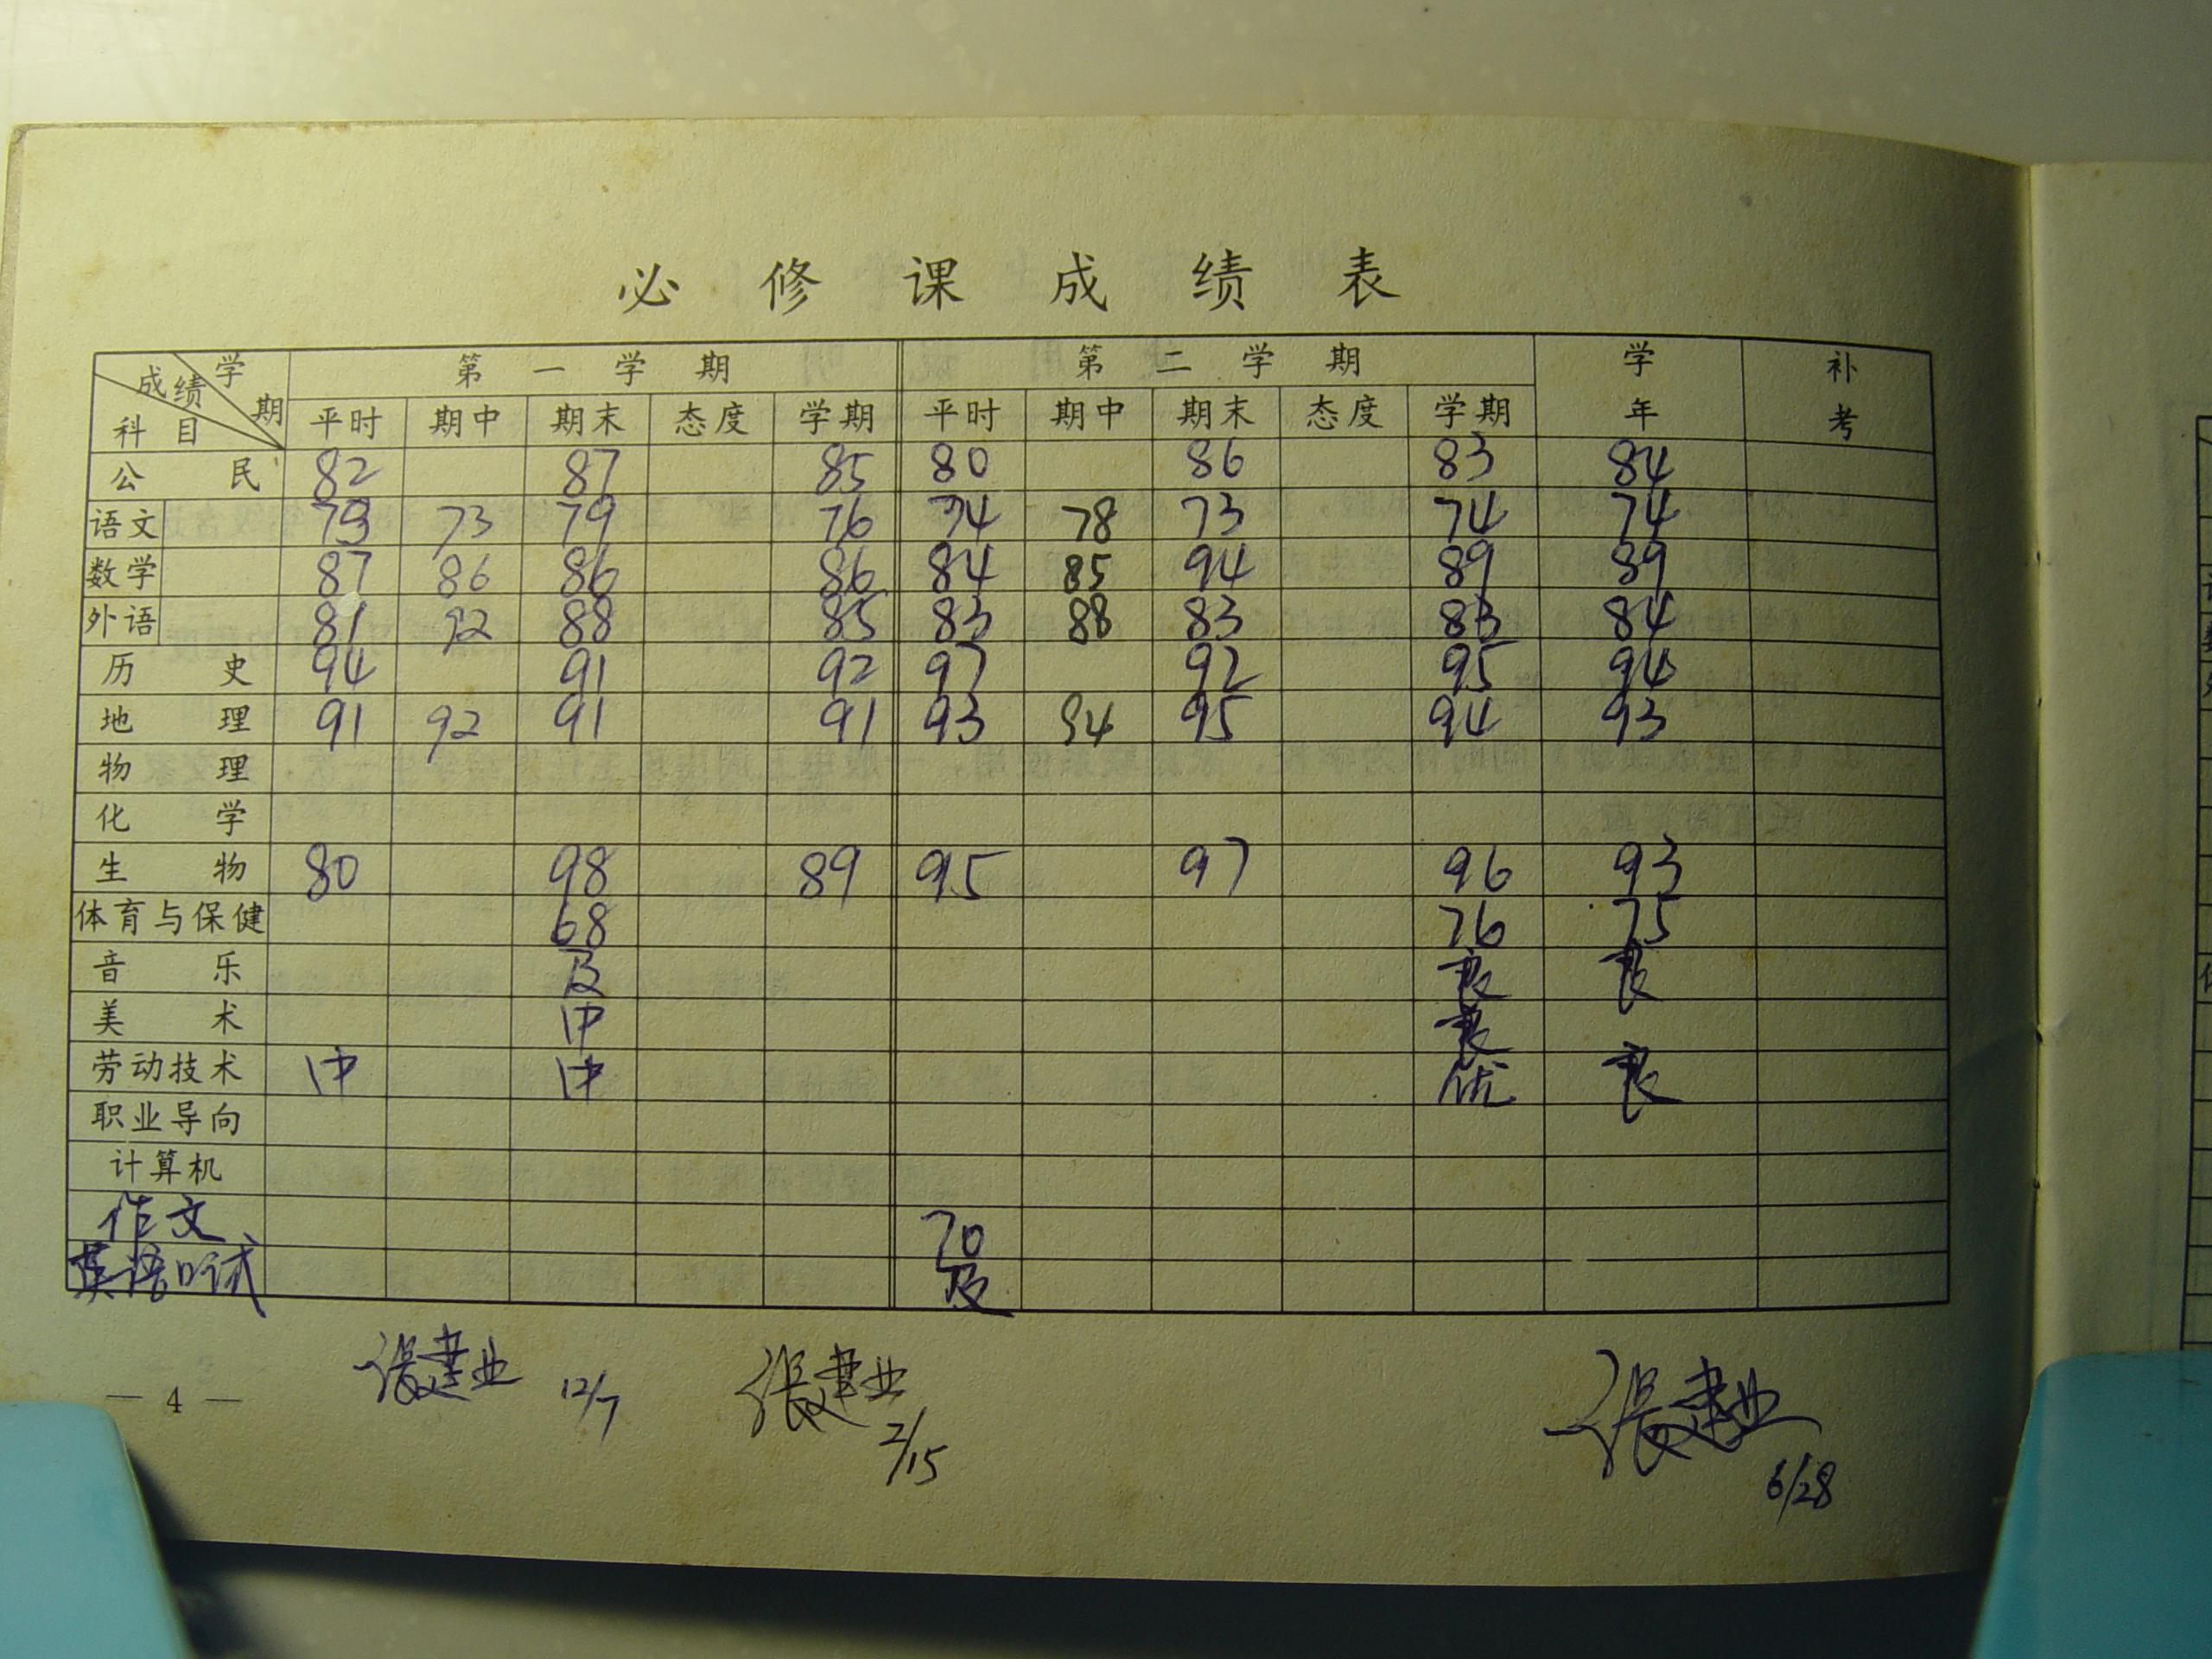 必修课成绩表
成绩 学期 科目 第一学期 第二学期 学年 补考
平时 期中 期末 态度 学期 平时 期中 期末 态度 学期
公民 82 87 85 80 86 83 84
语文 73 73 79 76 74 78 73 74 74
数学 87 86 86 86 84 85 94 89 89
外语 81 92 88 85 83 88 83 83 84
历史 94 91 92 97 92 95 94
地理 91 92 91 91 93 94 95 94 93
物理
化学
生物 80 98 89 95 97 96 93
体育与保健 68 76 75
音乐 及 良 良
美术 中 良
劳动技术 中 中 优 良
职业导向
计算机
作文 70
英语口试 及
张建业 12/7 张建业 2/15 张建业 6/28
— 4 —